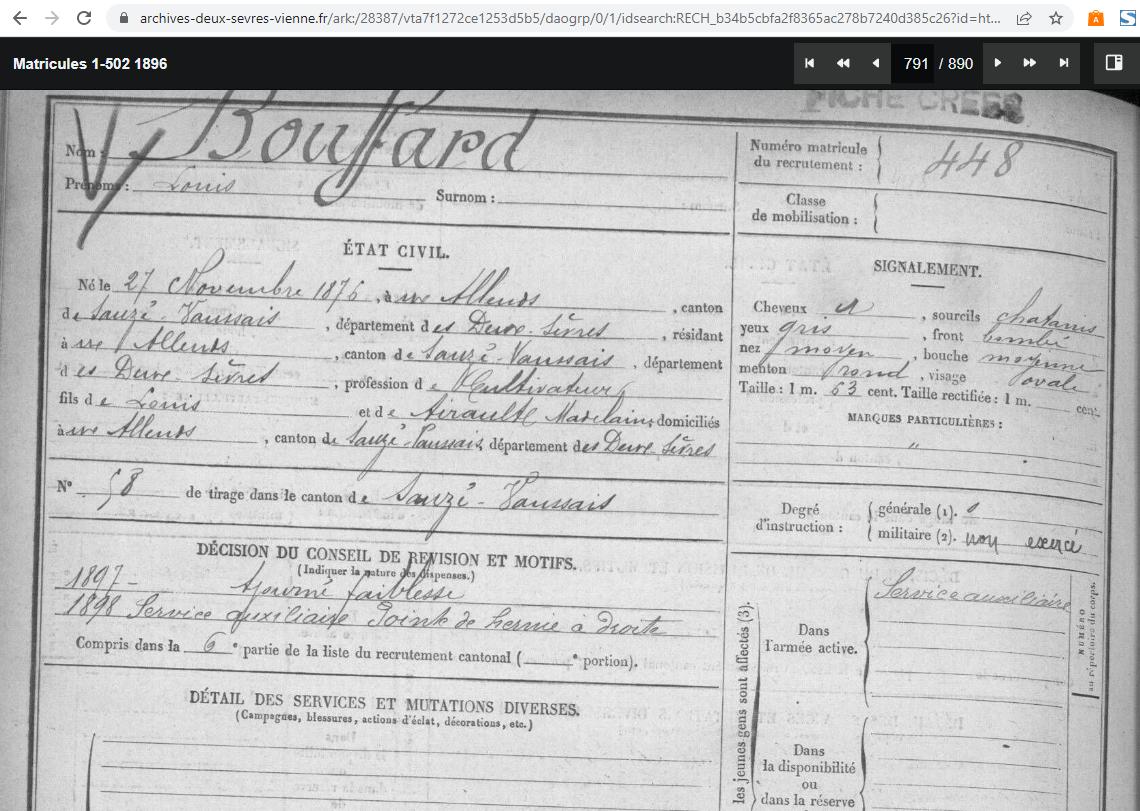 archives-deux-sevres-vienne.fr/ark:/28387/vta7f1272ce1253d5b5/daogrp/0/1/idsearch:RECH_b34b5cbfa2f8365ac278b7240d385c26?id=ht...
Matricules 1-502 1896
791 / 890
FICHE CRÉÉE
Nom : Bouffard
Prénoms : Louis
Surnom :
Numéro matricule du recrutement : 448
Classe de mobilisation :
ÉTAT CIVIL.
Né le 27 Novembre 1876, à Alleuds, canton
de Sauzé-Vaussais, département des Deux-Sèvres, résidant
à Alleuds, canton de Sauzé-Vaussais, département
des Deux-Sèvres, profession de Cultivateur
fils de Louis et de Airault Madelaine domiciliés
à Alleuds, canton de Sauzé-Vaussais, département des Deux-Sèvres
N° 58 de tirage dans le canton de Sauzé-Vaussais
SIGNALEMENT.
Cheveux, sourcils chatains
yeux gris, front bombé
nez moyen, bouche moyenne
menton rond, visage ovale
Taille : 1 m. 63 cent. Taille rectifiée : 1 m. cent.
MARQUES PARTICULIÈRES :
"
Degré d'instruction :
générale (1).
militaire (2). non exercé
DÉCISION DU CONSEIL DE REVISION ET MOTIFS.
(Indiquer la nature des dispenses.)
1897 - Ajourné faiblesse
1898 Service auxiliaire Pointe de hernie a droite
Compris dans la 6e partie de la liste du recrutement cantonal ( e portion).
DÉTAIL DES SERVICES ET MUTATIONS DIVERSES.
(Campagnes, blessures, actions d'éclat, décorations, etc.)
les jeunes gens sont affectés (3).
Dans l'armée active.
Service auxiliaire
NUMÉRO au répertoire du corps.
Dans
la disponibilité
ou
dans la réserve